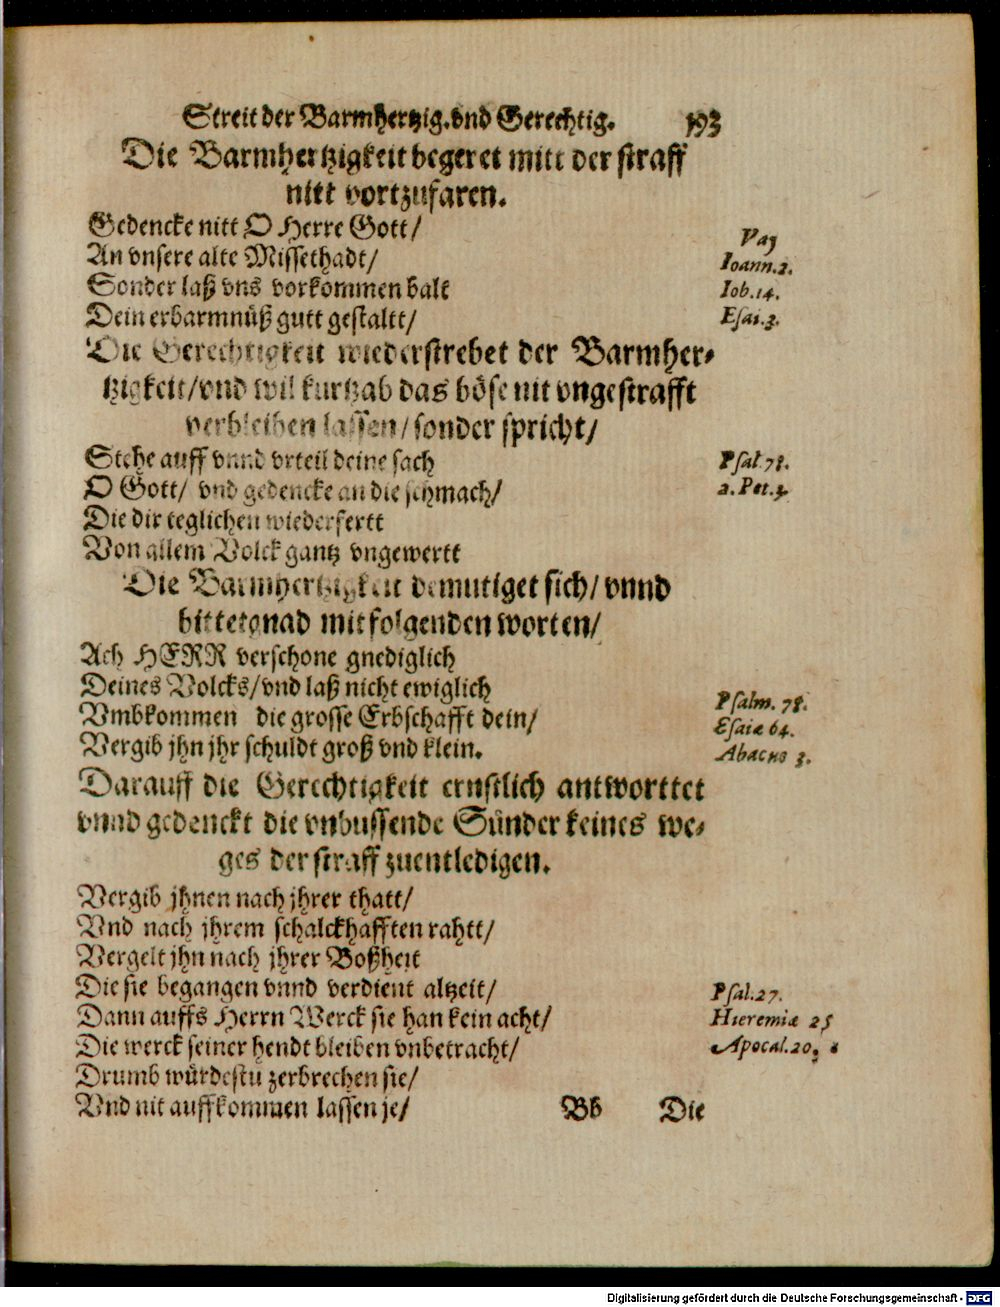 Streit der Barmhertzig. vnd Gerechtig. 193
Die Barmhertzigkeit begeret mitt der straff
nitt vortzufaren.
Gedencke nitt O Herre Gott/
An vnsere alte Missethadt/
Sonder laß vns vorkommen balt
Dein erbarmnüß gutt gestaltt/
Ioann.2.
Iob.14.
Esai.3.
Die Gerechtigkeit wiederstrebet der Barmher-
tzigkeit/vnd wil kurtzab das böse nit vngestrafft
verbleiben lassen/sonder spricht/
Stehe auff vnnd vrteil deine sach
O Gott/ vnd gedencke an die schmach/
Die dir teglichen wiederfertt
Von allem Volck gantz vngewertt
Psal.78.
2.Pet.3.
Die Barmhertzigkeit demutiget sich/ vnnd
bittet gnad mit folgenden worten/
Ach HERR verschone gnediglich
Deines Volcks/vnd laß nicht ewiglich
Vmbkommen die grosse Erbschafft dein/
Vergib jhn jhr schuldt groß vnd klein.
Psalm. 78.
Esaiæ 64.
Abacus 3.
Darauff die Gerechtigkeit ernstlich antworttet
vnnd gedenckt die vnbussende Sünder keines we-
ges der straff zuentledigen.
Vergib jhnen nach jhrer thatt/
Vnd nach jhrem schalckhafften rahtt/
Vergelt jhn nach jhrer Boßheit
Die sie begangen vnnd verdient altzeit/
Dann auffs Herrn Werck sie han kein acht/
Die werck seiner hendt bleiben vnbetracht/
Drumb würdestu zerbrechen sie/
Vnd nit auffkommen lassen je/
Psal.27.
Hieremiæ 25
Apocal.20.
Bb Die
Digitalisierung gefördert durch die Deutsche Forschungsgemeinschaft - DFG